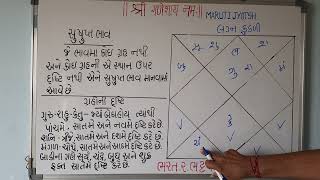 || શ્રી ગણેશાય નમઃ ||
MARUTI JYOTSH
લગ્ન કુંડળી
સુષુપ્ત ભાવ
જે ભાવમાં કોઈ ગ્રહ નથી
અને કોઈ ગ્રહની એ સ્થાન ઉપર
દ્રષ્ટિ નથી એને સુષુપ્ત ભાવ માનવામાં
આવે છે
ગ્રહોની દ્રષ્ટિ
ગુરુ-રાહુ-કેતુ- જ્યાં બેઠા હોય ત્યાંથી
પાંચમે, સાતમે અને નવમે દ્રષ્ટિ કરે છે.
શનિ- ત્રીજે, સાતમે અને દશમે દ્રષ્ટિ કરે છે.
મંગળ- ચોથે, સાતમે અને આઠમે દ્રષ્ટિ કરે છે.
બાકીના ગ્રહો સૂર્ય, ચંદ્ર, બુધ અને શુક્ર
ફક્ત સાતમે દ્રષ્ટિ કરે છે.
ભરત ર ભટ્ટ